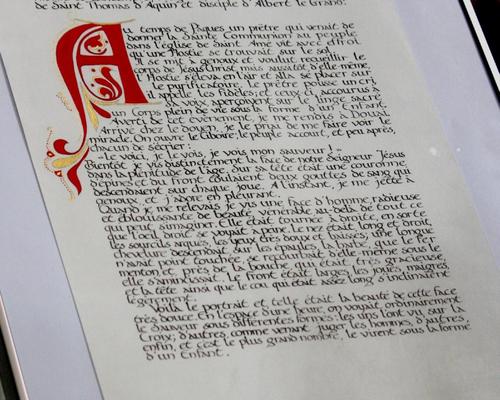 de Saint Thomas d'Aquin et disciple d'Albert le Grand.
Au temps de Pâques un prêtre qui venait de
donner la Sainte Communion au peuple
dans l'église de Saint Amé vit avec effroi
qu'une Hostie se trouvait sur le sol.
Il se mit à genoux et voulut recueillir le
corps de Jésus Christ, mais aussitôt d'elle même
l'Hostie s'éleva en l'air et alla se placer sur
le purificatoire. Le prêtre pousse un cri,
il appelle les fidèles; et ceux ci accourus à
sa voix aperçoivent sur le linge sacré
un Corps plein de vie sous la forme d'un Enfant.
Averti de cet évènement, je me rendis à Douai.
Arrivé chez le doyen, je le priai de me faire voir le
miracle. On ouvre le Ciboire le peuple accourt, et peu après,
chacun de s'écrier:
-"Le voici, je le vois, je vois mon Sauveur!"
Bientôt je vis distinctement la face de notre Seigneur Jésus
dans la plénitude de l'âge. Sur sa tête était une couronne
d'épines et du front coulaient deux gouttes de sang qui
descendaient sur chaque joue. A l'instant, je me jette à
genoux et j'adore en pleurant.
Quand je me relevais je vis une face d'homme, radieuse
et éblouissante de beauté, vénérable au-delà de tout ce
qui peut s'imaginer. Elle était tournée à droite, en sorte
que l'œil droit se voyait à peine. Le nez était long et droit,
les sourcils arqués, les yeux très doux et baissés; une longue
chevelure descendait sur les épaules, la barbe, que le fer
n'avait point touchée, se recourbait d'elle-même sous le
menton et près de la bouche qui était très gracieuse,
elle s'amincissait. Le front était large, les joues maigres
et la tête ainsi que le cou qui était assez long s'inclinaient
légèrement.
Voilà le portrait et telle était la beauté de cette face
très douce. En l'espace d'une heure, on voyait ordinairement
le Sauveur sous différentes formes: les uns l'ont vu, sur la
Croix; d'autres comme venant juger les hommes, d'autres,
enfin, et c'est le plus grand nombre, le virent sous la forme
d'un Enfant.